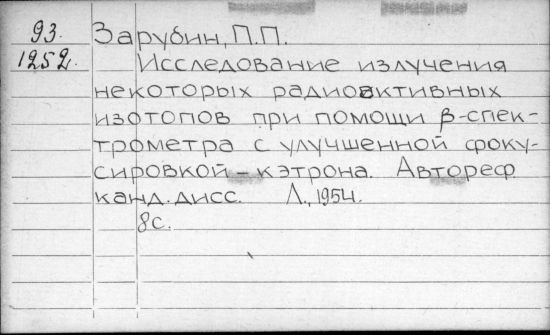 93. Зарубин, П.П.
1252. Исследование излучения
некоторых радиоактивных
изотопов при помощи β-спек-
трометра с улучшенной фоку-
сировкой - кэтрона. Автореф
канд. дисс. Л., 1954.
8с.